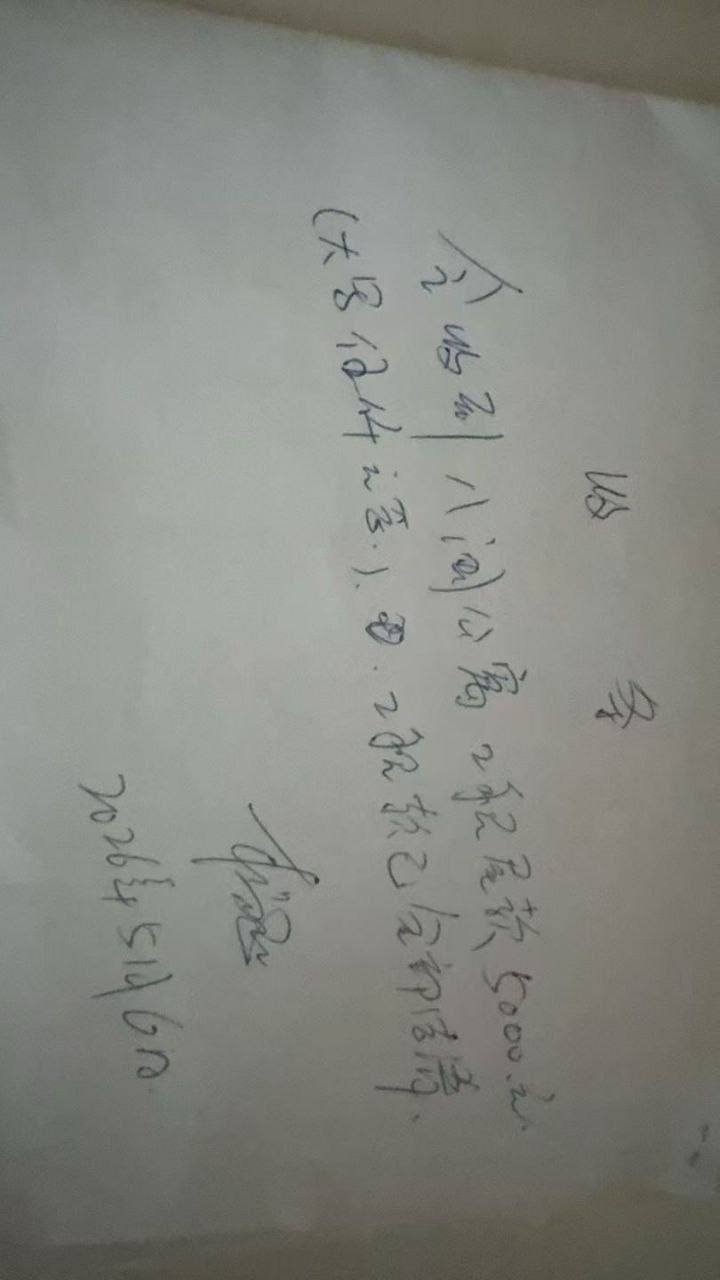 收条
今收到八间公寓工程尾款5000元
(大写伍仟元整).工程款已全部结清.
2026年5月6日.